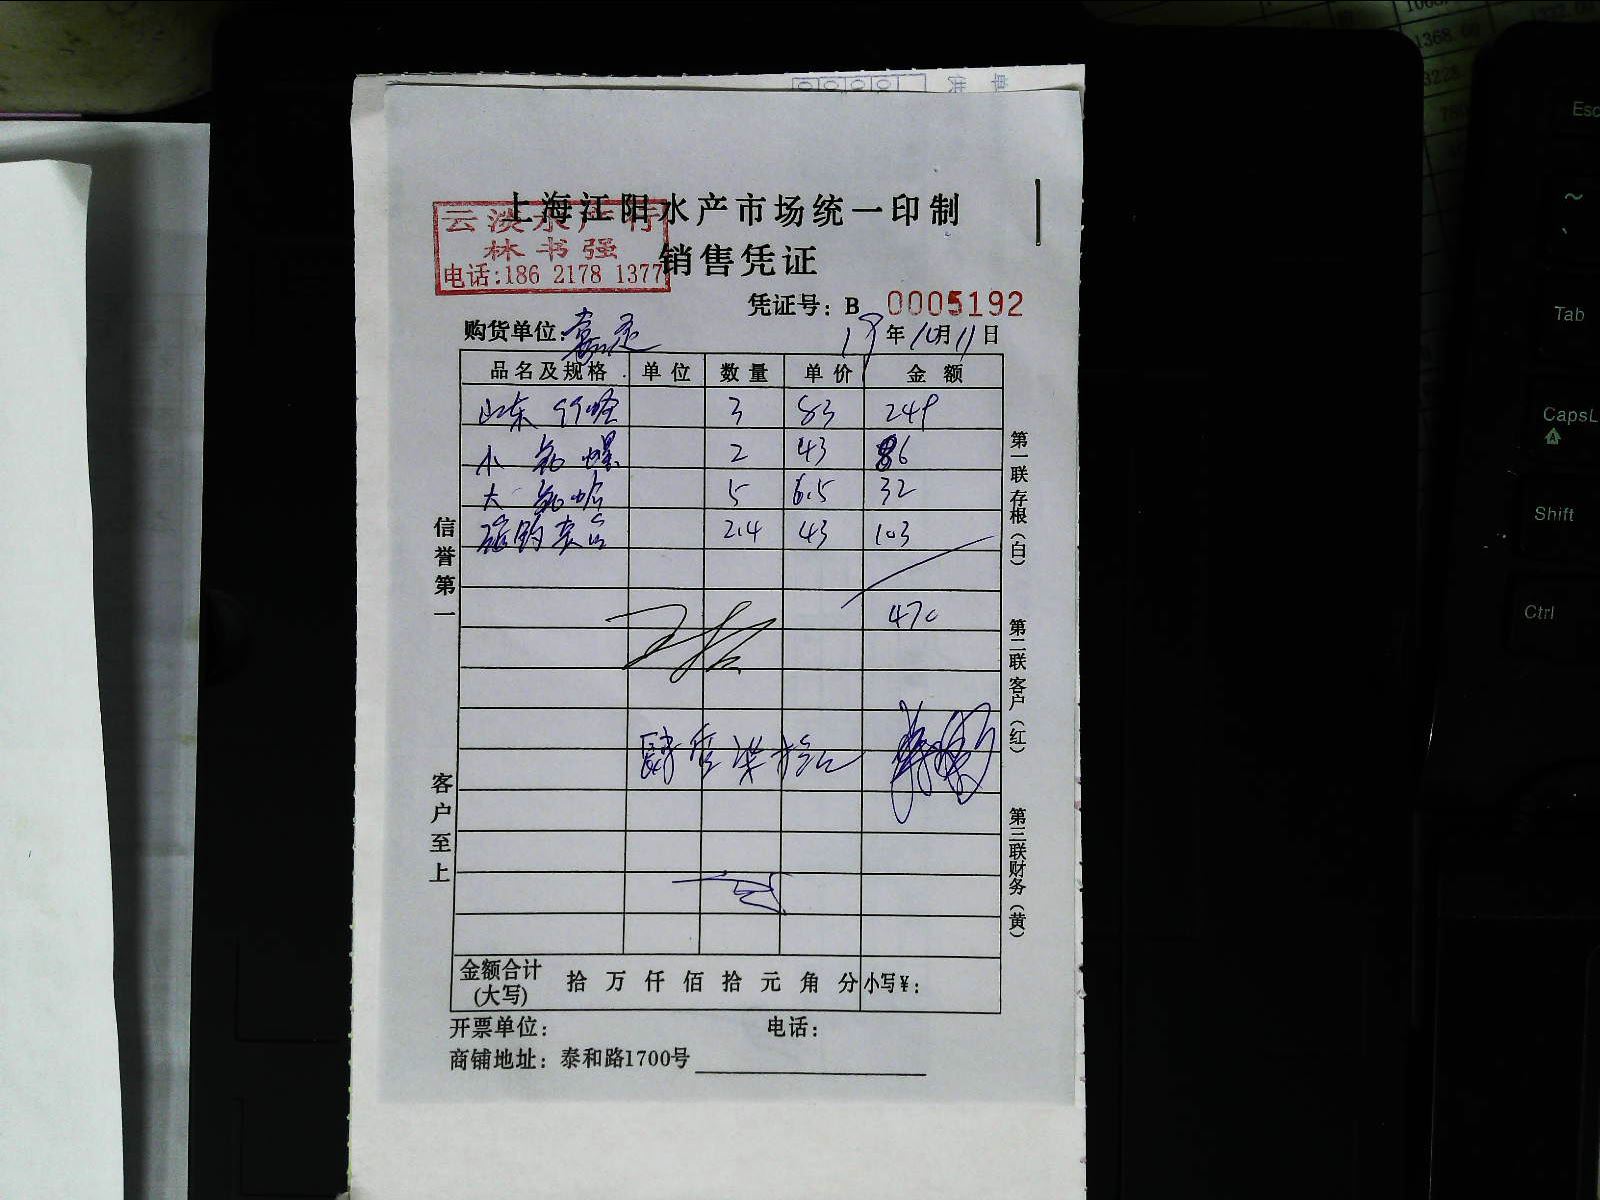 上海江阳水产市场统一印制
云淡水产行
林书强
电话:186 2178 1377
销售凭证
凭证号：B 0005192
购货单位：嘉定 19年10月11日
品名及规格 单位 数量 单价 金额
山东竹蛏 3 83 249
小 2 43 86
大 5 6.5 32
2.4 43 103
470
肆佰柒拾元
信誉第一
客户至上
第一联存根（白）
第二联客户（红）
第三联财务（黄）
金额合计(大写) 拾 万 仟 佰 拾 元 角 分 小写¥：
开票单位： 电话：
商铺地址：泰和路1700号
Esc
~
`
Tab
CapsL
A
Shift
Ctrl